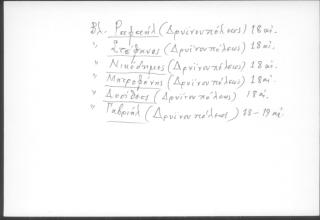 Βλ. Ραφαήλ (Δρυϊνουπόλεως) 18 αἰ.
" Στέφανος (Δρυϊνουπόλεως) 18 αἰ.
" Νικόδημος (Δρυϊνουπόλεως) 18 αἰ.
" Μητροφάνης (Δρυϊνουπόλεως) 18 αἰ.
" Δοσίθεος (Δρυϊνουπόλεως) 18 αἰ.
" Γαβριήλ (Δρυϊνουπόλεως) 18-19 αἰ.